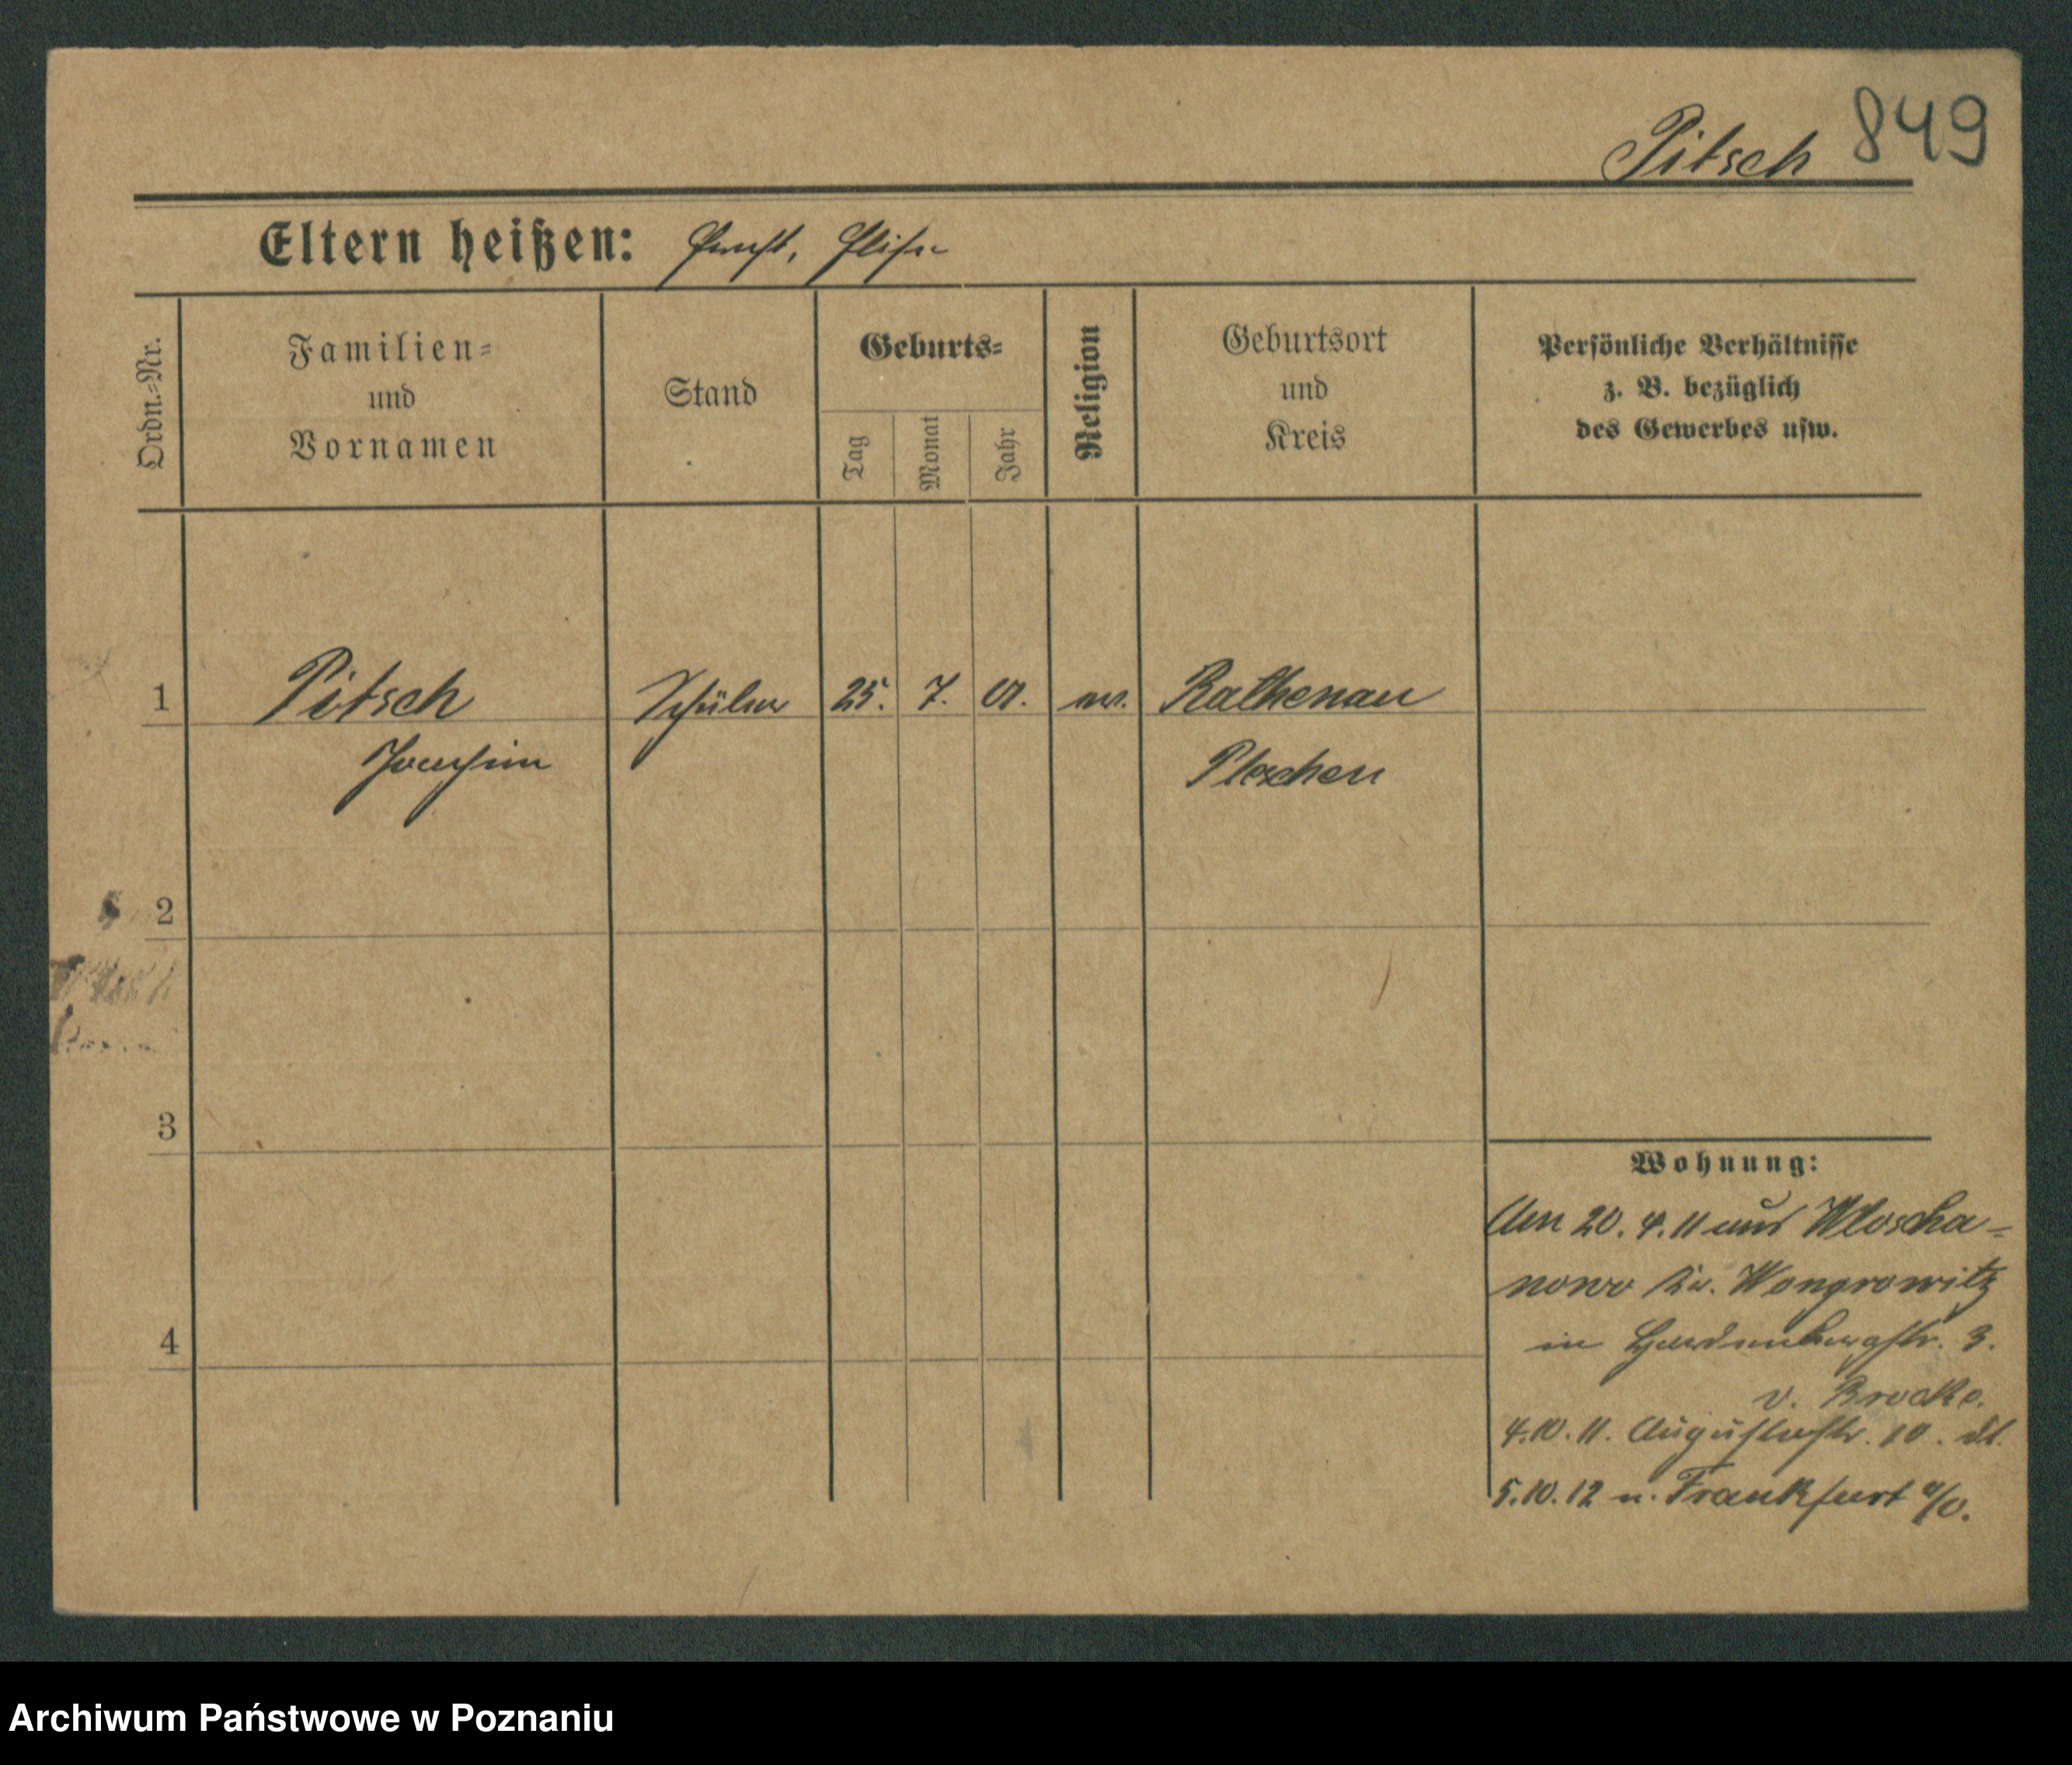 Pitsch 849
Eltern heißen: Ernst, Elise
Ordn.=Nr.
Familien=
und
Vornamen
Stand
Geburts=
Tag
Monat
Jahr
Religion
Geburtsort
und
Kreis
Persönliche Verhältnisse
z. B. bezüglich
des Gewerbes usw.
1 Pitsch Schüler 25. 7. 01. ev. Rathenau
Joachim Pleschen
2
3
4
Wohnung:
Am 20. 4. 11 aus Wloscha-
nowo Kr. Wongrowitz
in Hardenbergstr. 3.
v. Brocke.
4.10.11. Augustastr. 10.
5.10.12 n. Frankfurt a/O.
Archiwum Państwowe w Poznaniu